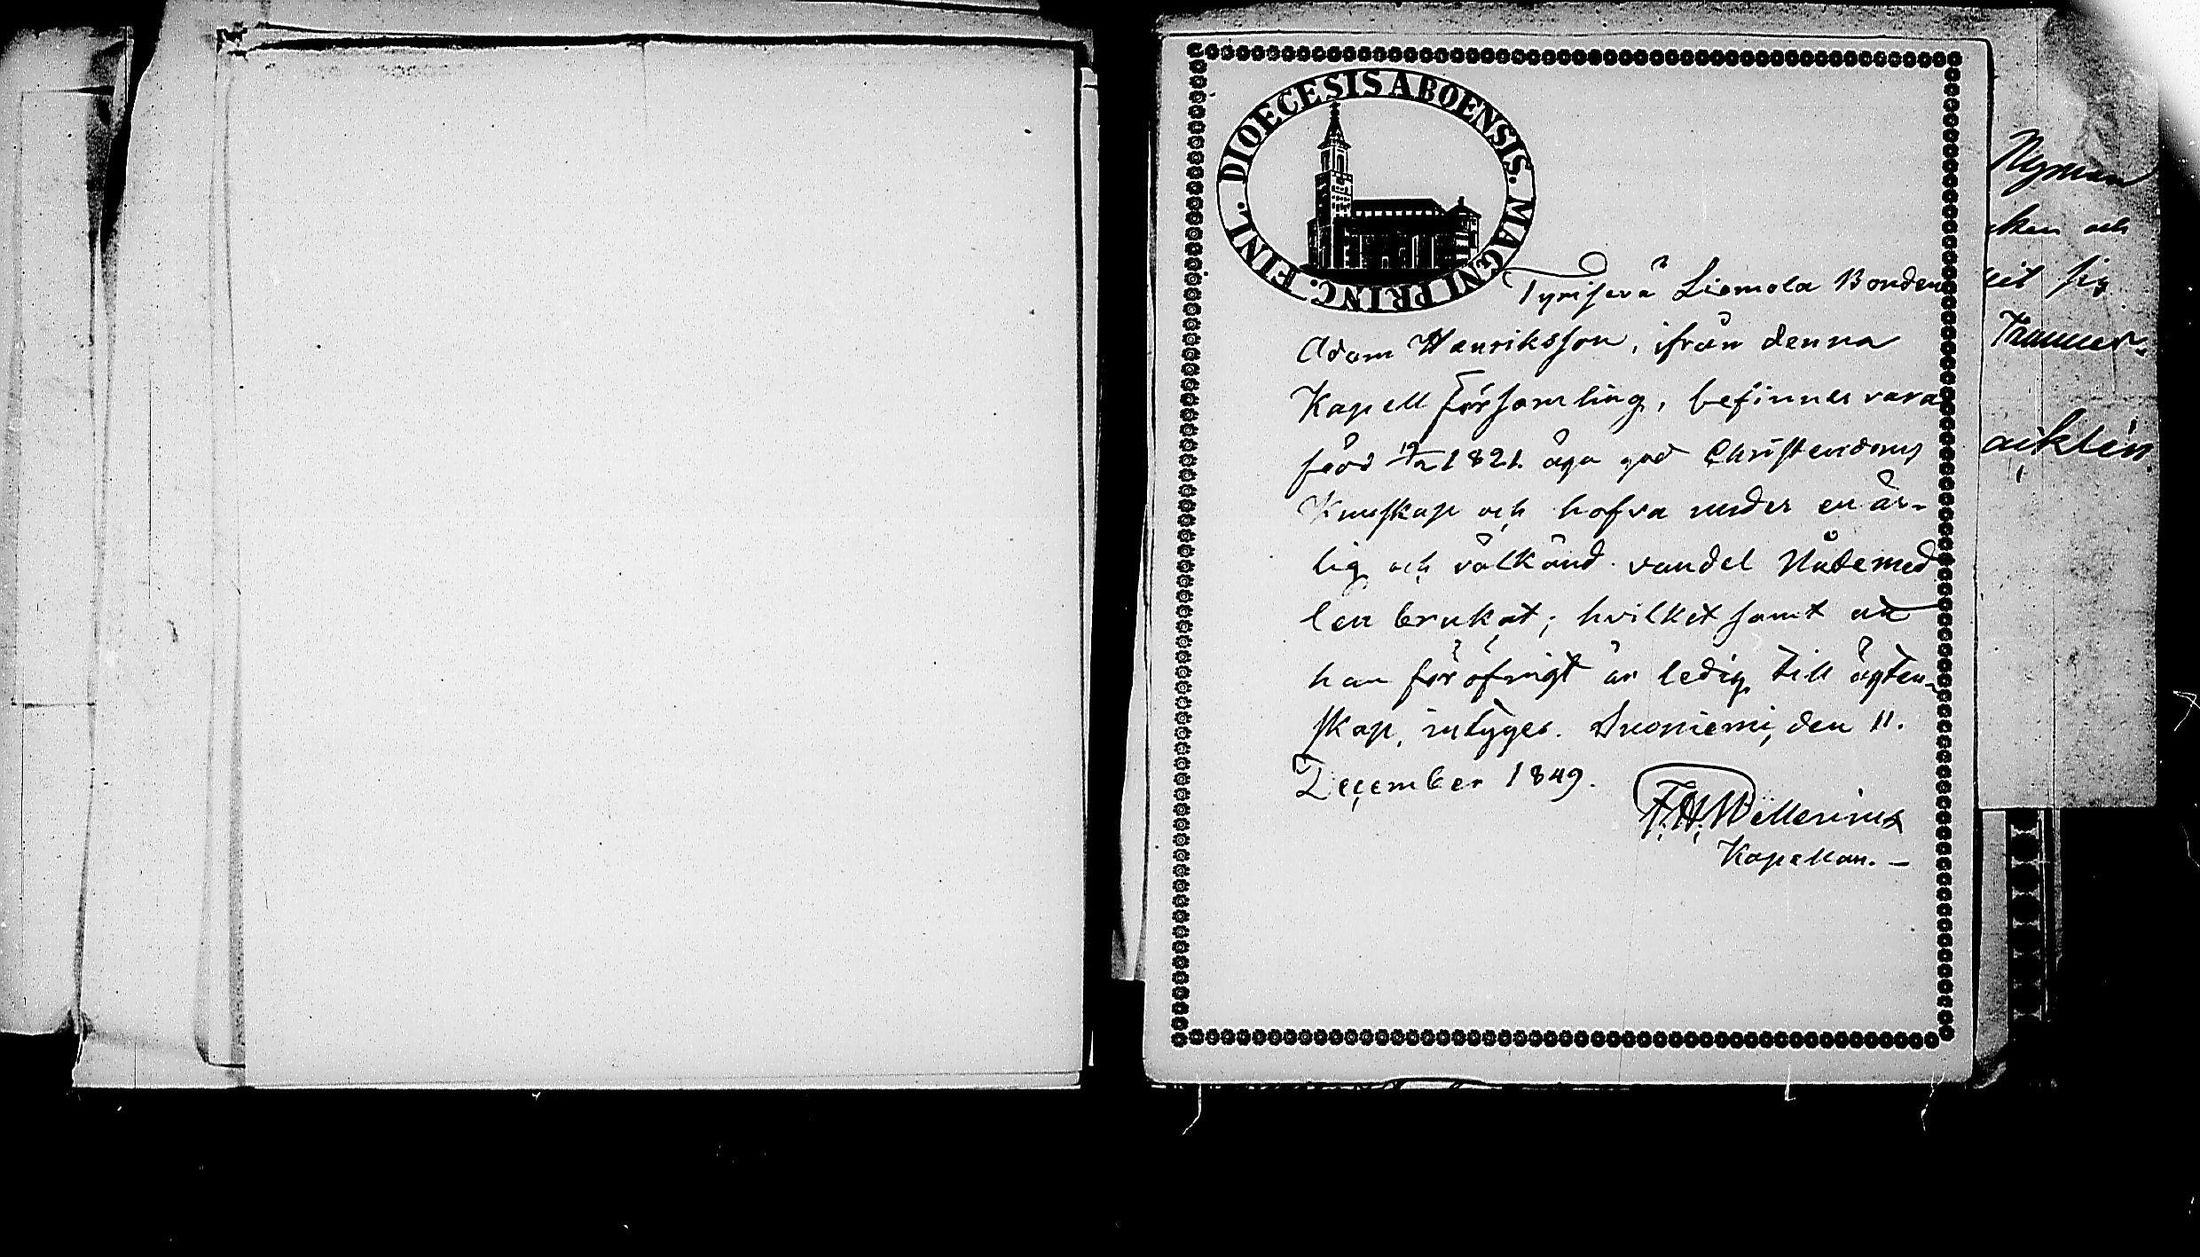 DIOECESIS ABOENSIS. MAGNI PRINC. FINL.
Tyrisevä Liemola Bonden
Adam Henriksson, ifrån denna
Kapell Församling, befinnes vara
född 1821. äga god Christendoms
Kunskap och hafva under en är-
lig och välkänd vandel Nådemed
len brukat; hvilket samt att
han föröfrigt är ledig till ägten-
skap, intyges. Suoniemi, den 11.
December 1849.
F. H. Wellenius
Kapellan. –
Nyman
ken och
sig